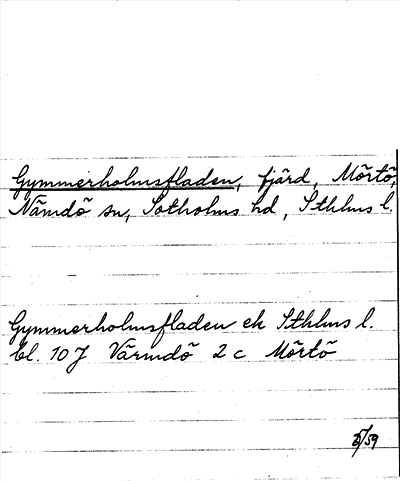 Gymmerholmsfladen, fjärd, Mörtö,
Nämdö sn, Sotholms hd, Sthlms l.
Gymmerholmsfladen ek Sthlms l.
bl. 10 J Värmdö 2 c Mörtö
/59